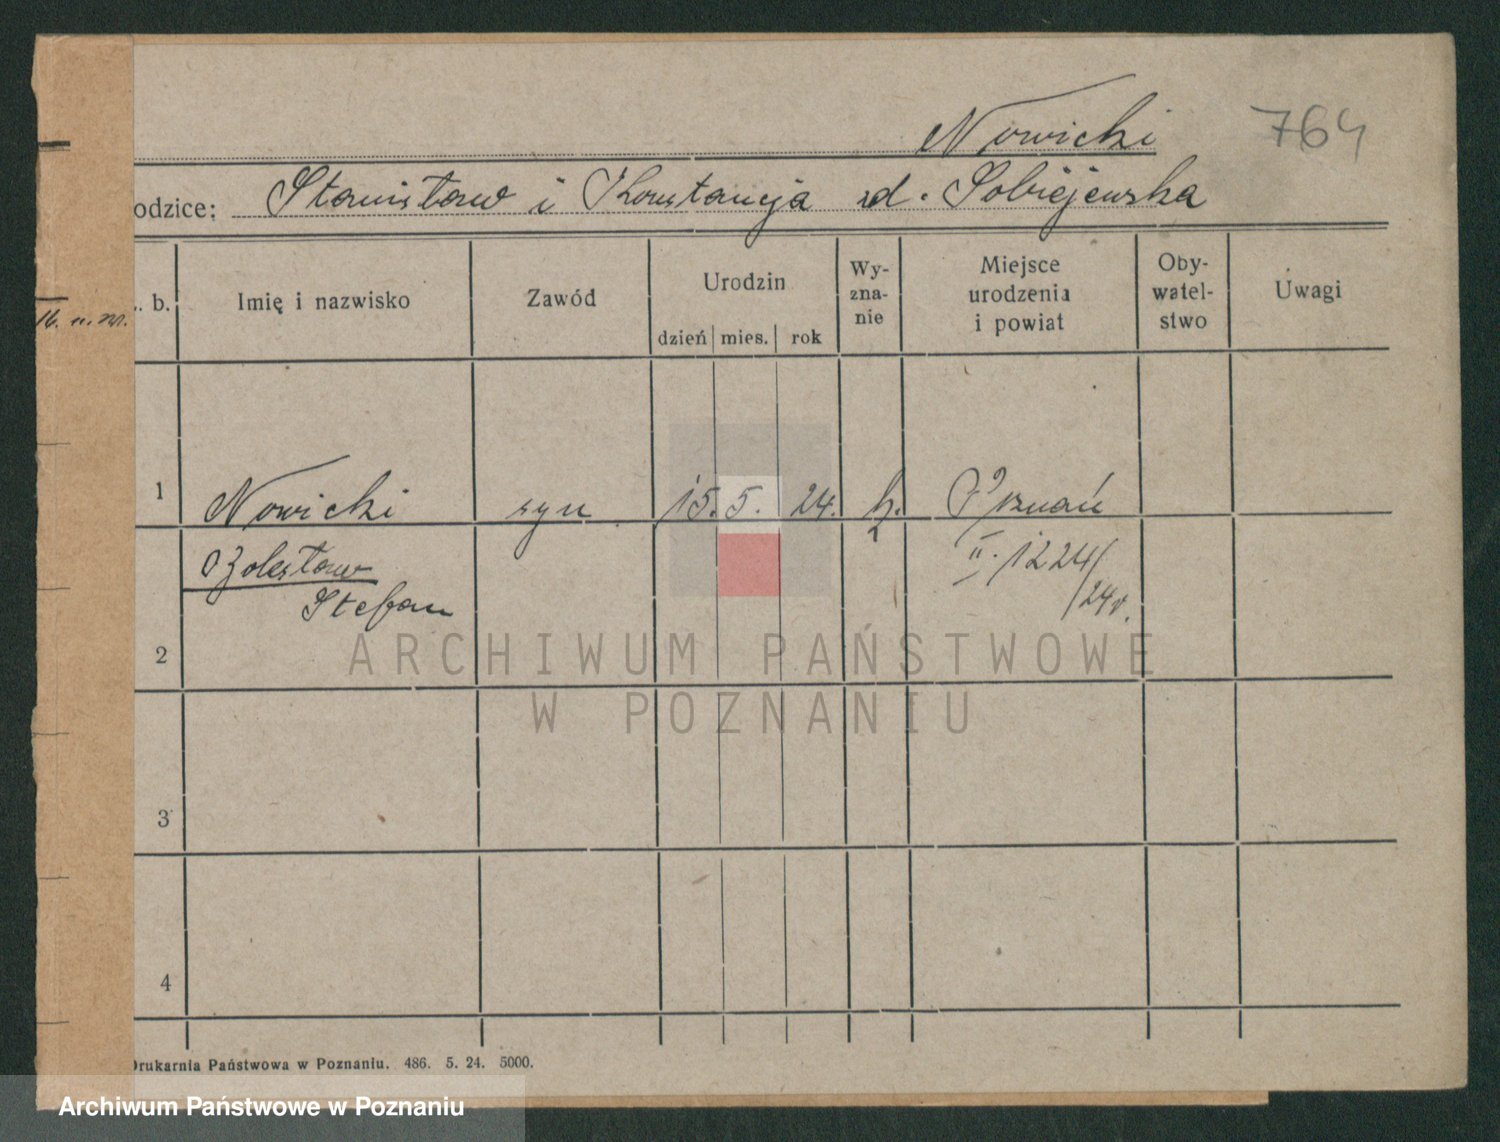 Nowicki 764
odzice: Stanisław i Konstancja zd. Sobiejewska
. b. Imię i nazwisko Zawód Urodzin dzień mies. rok Wy-zna-nie Miejsce urodzenia i powiat Oby-watel-stwo Uwagi
16. n. m.
1 Nowicki syn 15. 5. 24. k. Poznań
Bolesław II. 1224/
Stefan /24r.
2
ARCHIWUM PAŃSTWOWE
W POZNANIU
3
4
Drukarnia Państwowa w Poznaniu. 486. 5. 24. 5000.
Archiwum Państwowe w Poznaniu